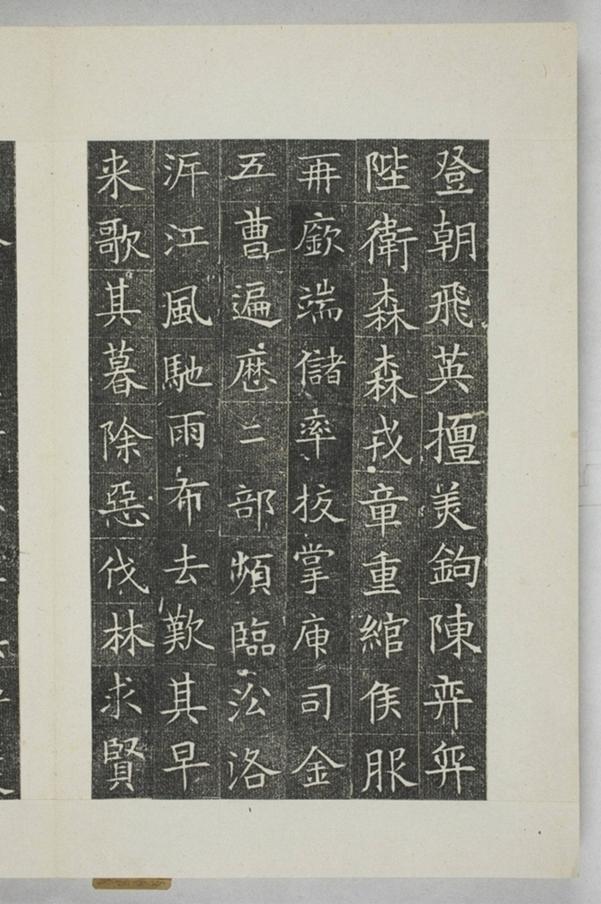 登朝飛英擅美鉤陳弈弈
陛衛森森戎章重綰侯服
再廞端儲率挍掌庾司金
五曹遍應二部頻臨沇洛
泝江風馳雨布去歎其早
来歌其暮除惡伐林求賢